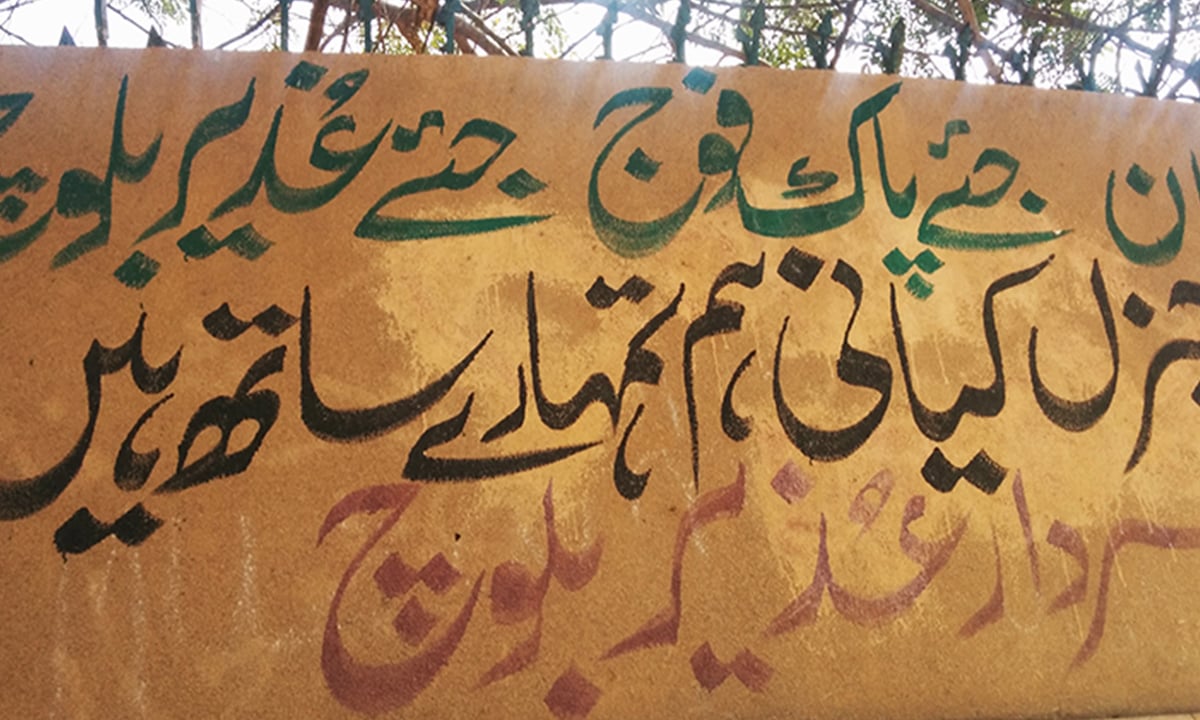 ان جئے پاک فوج جئے عُذیر بلوچ
جنرل کیانی ہم تمہارے ساتھ ہیں
سردار عُذیر بلوچ